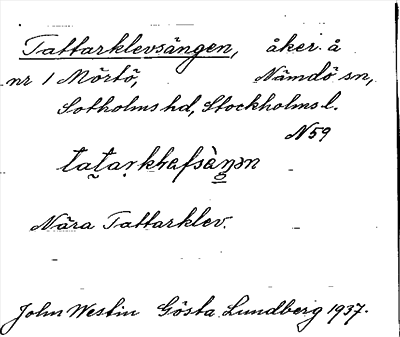 Tattarklevsängen, åker å
nr 1 Mörtö, Nämdö sn,
Sotholms hd, Stockholms l.
N 59
Nära Tattarklev.
John Westin Gösta Lundberg 1937.